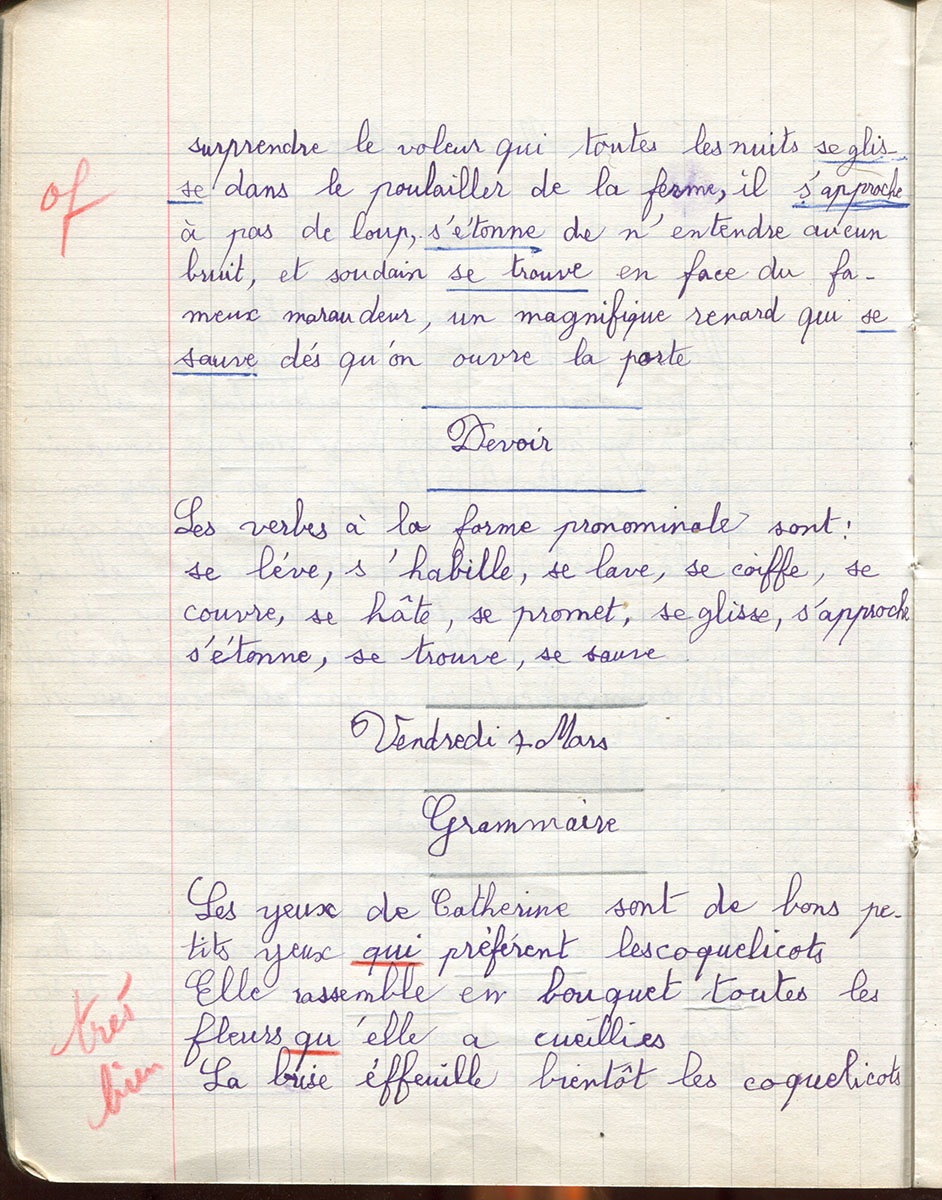 surprendre le voleur qui toutes les nuits se glis-
se dans le poulailler de la ferme, il s'approche
à pas de loup, s'étonne de n'entendre aucun
bruit, et soudain se trouve en face du fa-
meux maraudeur, un magnifique renard qui se
sauve dés qu'on ouvre la porte
Devoir
Les verbes à la forme pronominale sont:
se léve, s'habille, se lave, se coiffe, se
couvre, se hâte, se promet, se glisse, s'approche
s'étonne, se trouve, se sauve
Vendredi 7 Mars
Grammaire
Les yeux de Catherine sont de bons pe-
tits yeux qui préférent les coquelicots
Elle rassemble en bouquet toutes les
fleurs qu'elle a cueillies
très
bien
La brise éffeuille bientôt les coquelicots